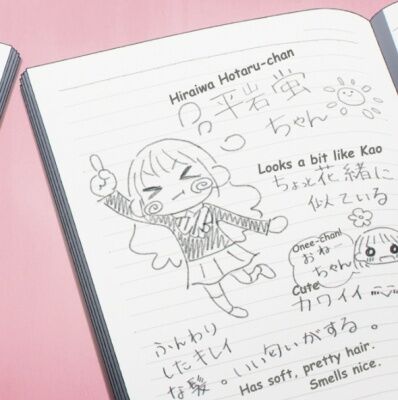 Hiraiwa Hotaru-chan
平岩蛍
ちゃん
Looks a bit like Kao
ちょっと花緒に
似ている
Onee-chan!
おねー
ちゃん
Cute
カワイイ
ふんわり
したキレイ
な髪。いい匂いがする。
Has soft, pretty hair.
Smells nice.